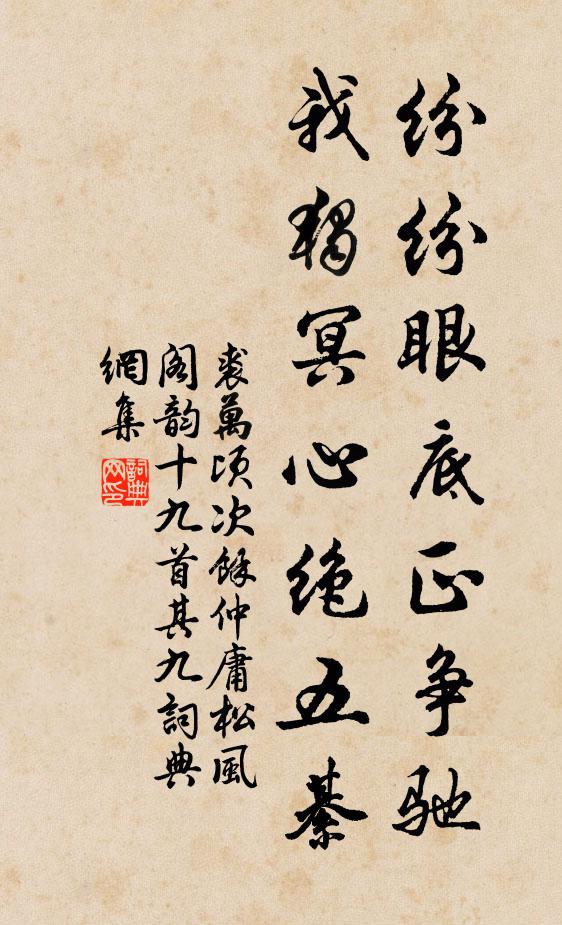 纷纷眼底正争驰
我独冥心绝五綦
裘萬頃次餘仲庸松風
阁韵十九首其九詞典
網集
詞典
网印